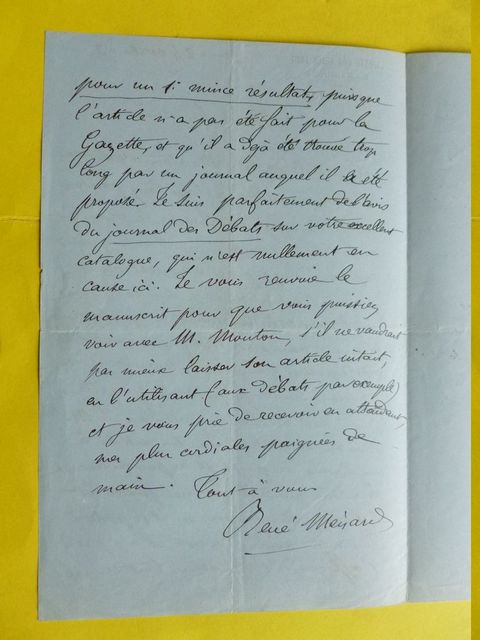 pour un si mince résultat, puisque
l'article n'a pas été fait pour la
Gazette, et qu'il a déjà été trouvé trop
long par un journal auquel il a été
proposé. Je suis parfaitement de l'avis
du journal des Débats sur votre excellent
catalogue, qui n'est nullement en
cause ici. Je vous renvoie le
manuscrit pour que vous puissiez
voir avec M. Mouton, s'il ne vaudrait
pas mieux laisser son article intact,
en l'utilisant (aux débats par exemple)
et je vous prie de recevoir en attendant,
mes plus cordiales poignées de
main. Tout à vous
René Ménard